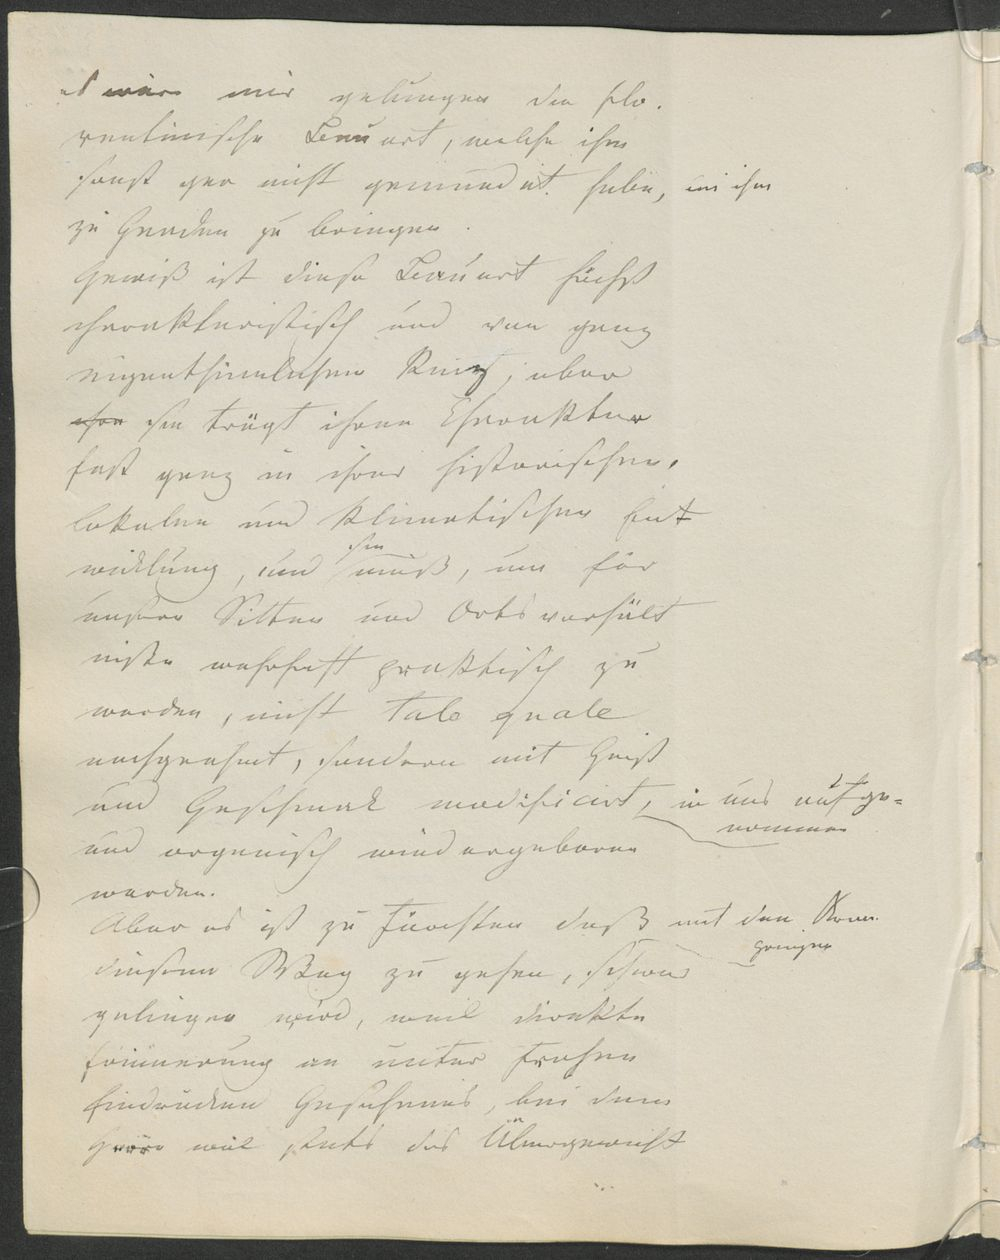 es wäre mir gelungen die flo-
rentinische Bauart, welche ihm
sonst gar nicht gemundet habe, bei ihm
zu Gnaden zu bringen.
Gewiß ist diese Bauart höchst
charakteristisch und von ganz
eigenthümlichem Reiz, aber
sie trägt ihren Charakter
fast ganz in ihrer historischen,
lokalen und klimatischen Ent
wicklung, und sie muß, um für
unsere Sitten und Ortsverhält
niße wahrhaft praktisch zu
werden, nicht tale quale
nachgeahmt, sondern mit Geist
und Geschmack modificirt, in uns aufge=
nommen
und organisch wiedergeboren
werden.
Aber es ist zu fürchten daß mit den
diesem Weg zu gehen, schwer
gelingen wird, weil direkte
Erinnerung an unter frohen
Eindrücken Gesehenes, bei dem
weil stets das Übergewicht